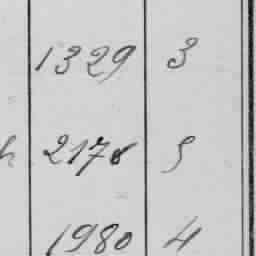 1329 3
h 2178 5
1980 4